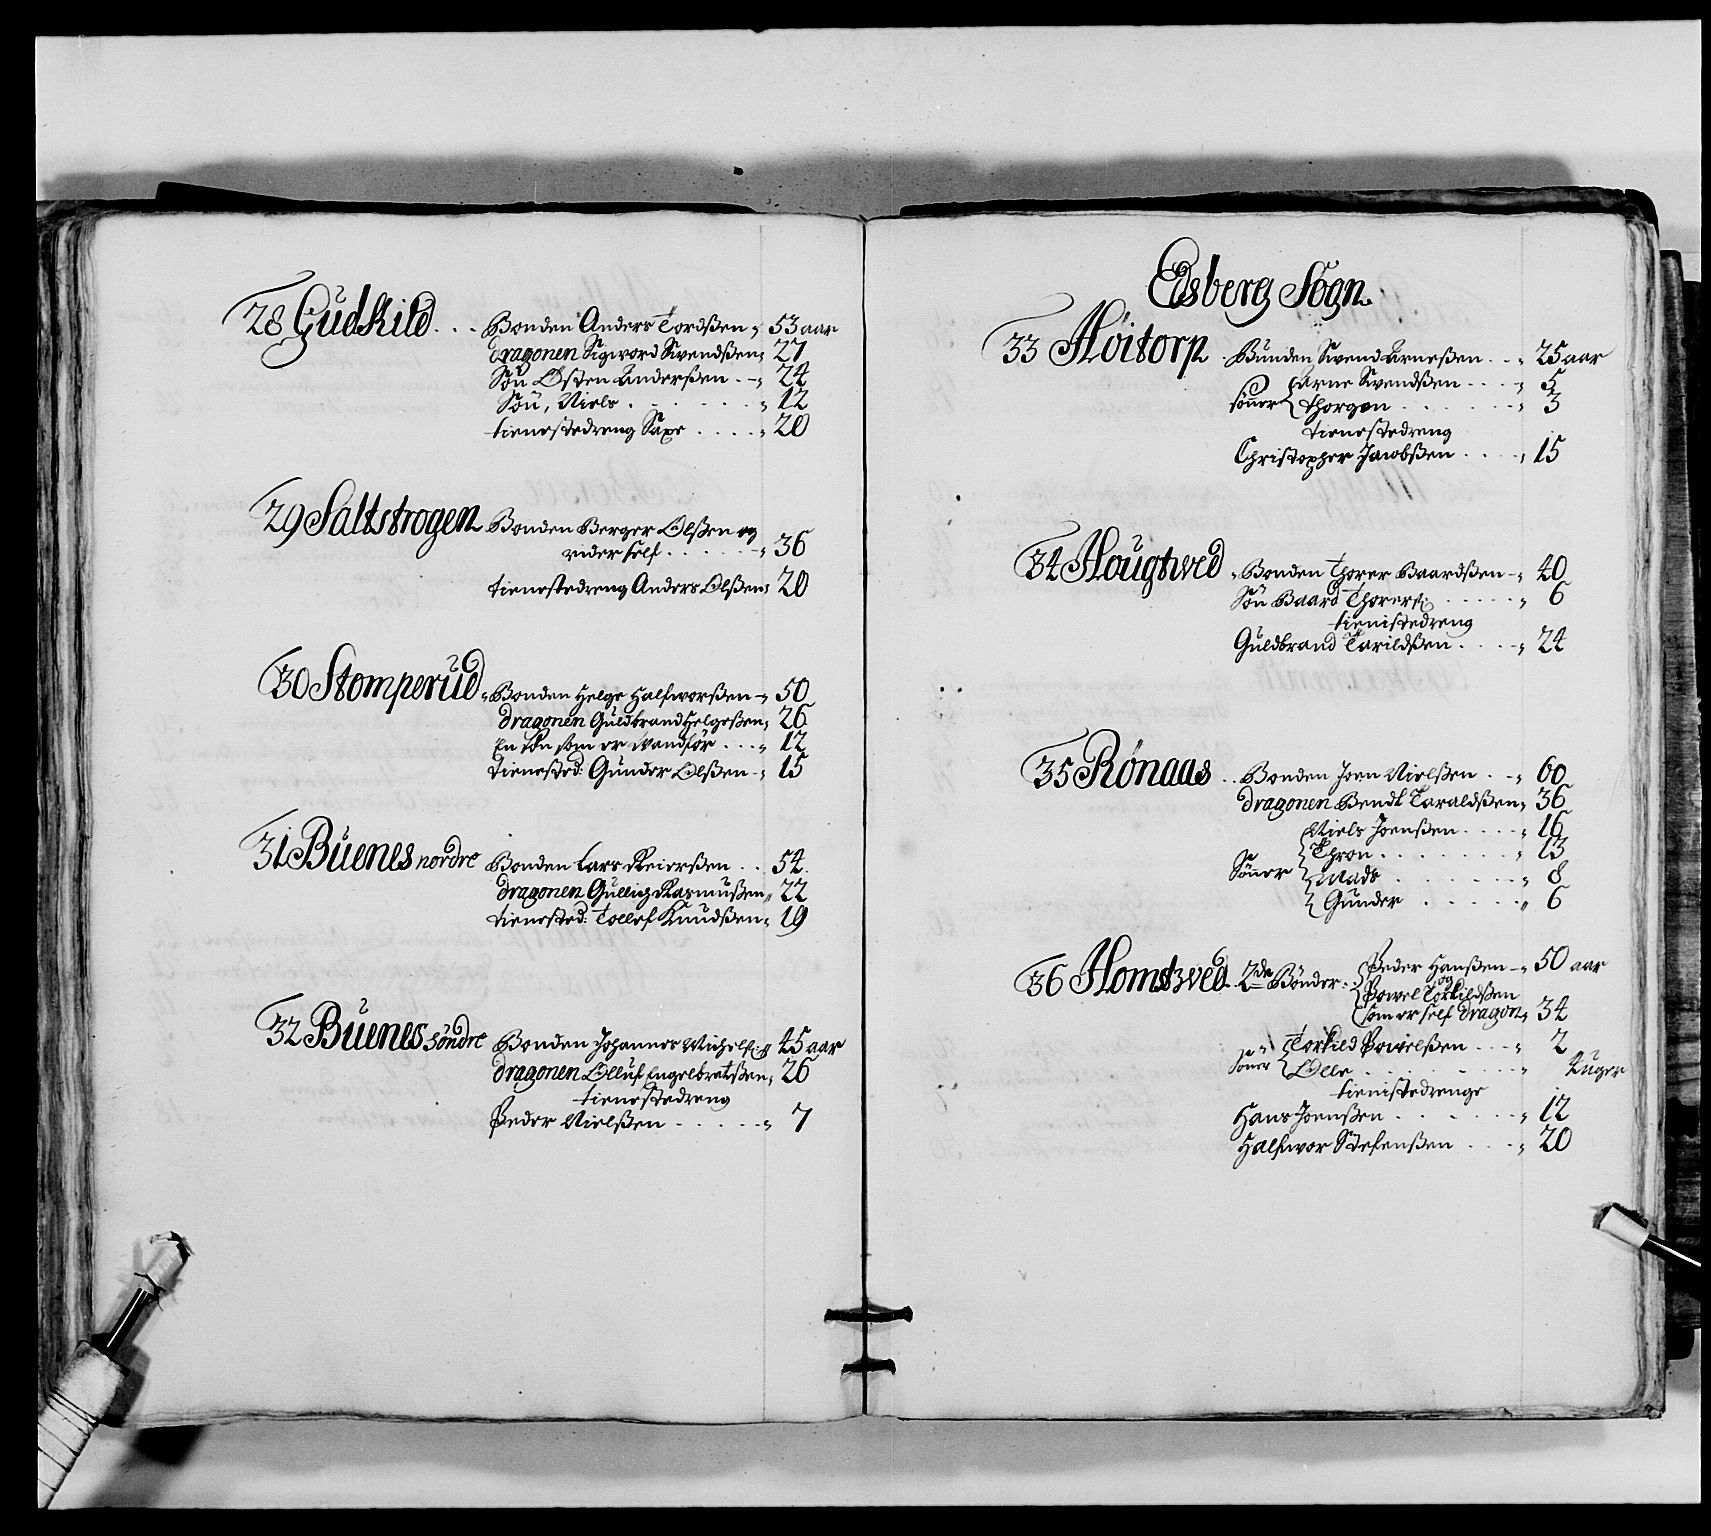 28 Gudkild . . . Bonden Anders Tordßen „ 53 aar
dragonen Sigword Swendßen „ 27
Søn Østen Anderßen . – „ 24
Søn, Niels . . . . . . „ 12
tienestedreng Saxe . . . . „ 20
29 Saltstrogen Bonden Berger Olßen og
rider self . . . . . – „ 36
tienestedreng Anders Olßen „ 20
30 Stomperud „ Bonden Helge Halfworßen – „ 50
dragonen Guldbrand Helgeßen „ 26
En søn som er wandför . . . „ 12
tienested: Gunder Olßen – „ 15
31 Buenes nordre Bonden Lars Reierßen . . 54.
dragonen Gullich Rasmußen „ 22
tienested: Tollef Knudßen „ 19
32 Buenes Söndre Bonden Johannes Michelß: „ 45 aar
dragonen Olluf Engelbretßen „ 26
tienestedreng
Peder Nielßen . . . . . – „ 7
Edsberg Sogn
33 Höitorp Bunden Swend Arneßen . . . „ 25 aar
Arne Swendßen . . . . „ 5
sönner Thorgen . . . . . . . „ 3
tienestedreng
Christopher Jacobßen . . . . „ 15
34 Hougtved „ Bonden Thorer Baardßen – „ 40
Søn Baard Thorerß: . . . . . „ 6
tienistedreng
Guldbrand Tarildßen . . . . – „ 24
35 Rönaas . . Bonden Joen Nielßen . – „ 60
dragonen Bendt Taraldßen „ 36
Niels Joenßen . . . . „ 16
Thron . . . . . . . . „ 13
Sönner Mads . . . . . . . „ 8
Gunder . . . . . „ 6
36 Homstved . 2de Bönder . Peder Hanßen – „ 50 aar
og
Powel Torkildßen
som er self dragon „ 34
Torkild Powelßen . . – „ 2
Söner Olle . . . . . . . . „ 4 uger
tienistedrenge
Hans Joenßen . . . . . . – „ 12
Halfwor Stefenßen . . . – „ 20